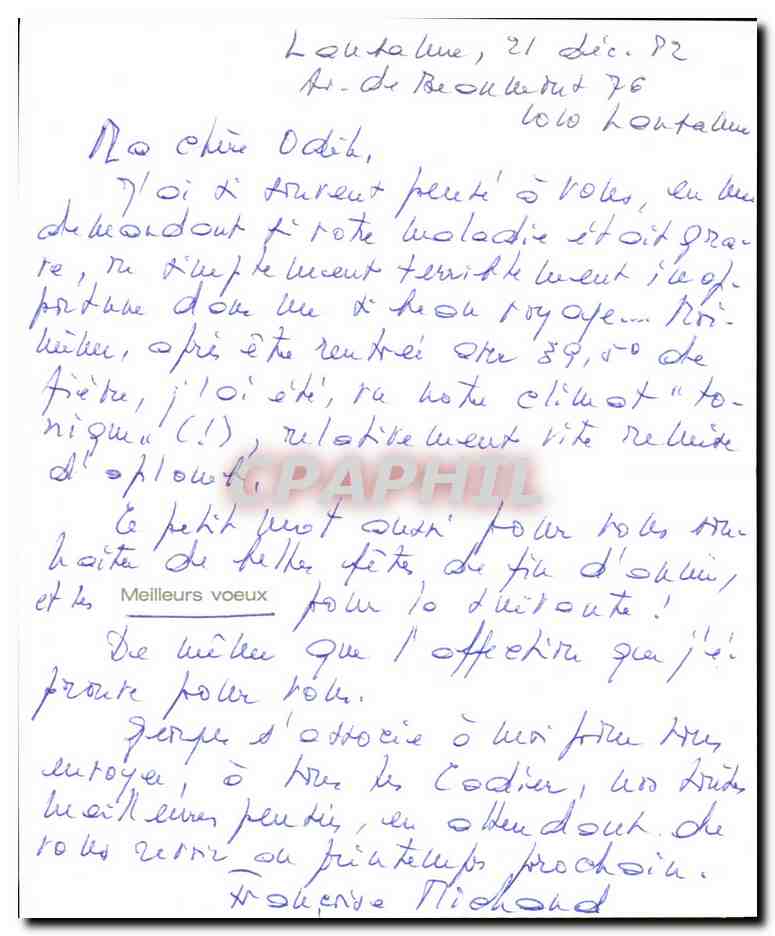 Lausanne, 21 déc. 82
Av. de Beaumont 76
1010 Lausanne
Ma chère Odile,
J'ai si souvent pensé à vous, en me
demandant si votre maladie était gra-
ve, ou simplement terriblement inop-
portune dans un si beau voyage.... Moi-
même, après être rentrée avec 39,5° de
fièvre, j'ai été, vu notre climat "to-
nique" (!), relativement vite remise
d'aplomb.
CPAPHIL
Ce petit mot aussi pour vous sou-
haiter de belles fêtes de fin d'année,
et les Meilleurs voeux pour la suivante !
De même que l'affection que j'é-
prouve pour vous.
Georges s'associe à moi pour vous
envoyer, à tous les Cadier, nos toutes
meilleures pensées, en attendant de
vous revoir au printemps prochain.
Françoise Michaud